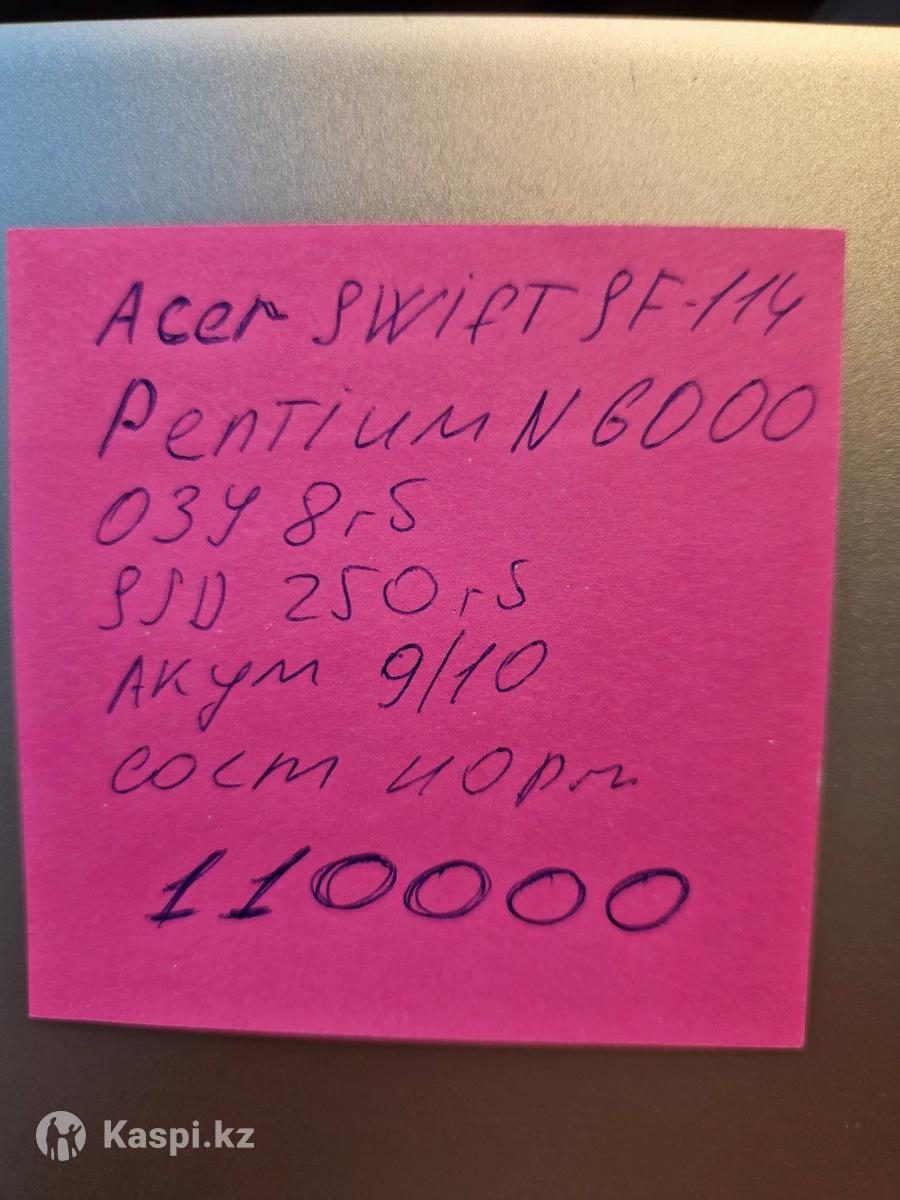 Acer SWifT SF-114
Pentium N 6000
ОЗУ 8 гб
SSD 250 гб
Акум 9/10
сост норм
110000
Kaspi.kz